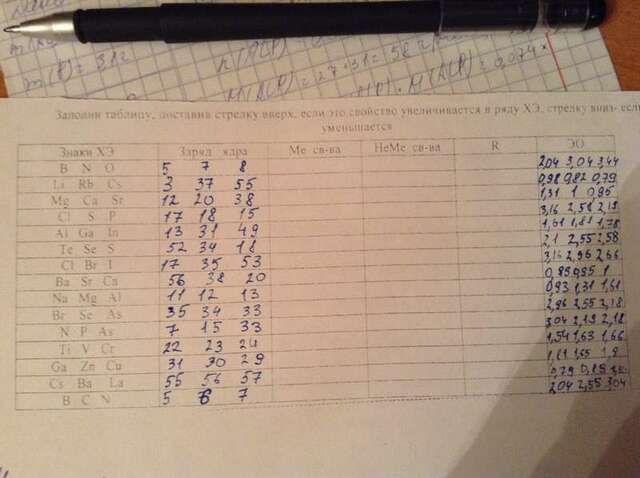 m(P) = 31г
Заполни таблицу, поставив стрелку вверх, если это свойство увеличивается в ряду ХЭ, стрелку вниз- если
уменьшается
Знаки ХЭ Заряд ядра Ме св-ва НеМе св-ва R ЭО
B N O 5 7 8 2,04 3,04 3,44
Li Rb Cs 3 37 55 0,98 0,82 0,79
Mg Ca Sr 12 20 38 1,31 1 0,95
Cl S P 17 18 15 3,16 2,58 2,19
Al Ga In 13 31 49 1,61 1,81 1,78
Te Se S 52 34 18 2,1 2,55 2,58
Cl Br I 17 35 53 3,16 2,96 2,66
Ba Sr Ca 56 38 20 0,89 0,95 1
Na Mg Al 11 12 13 0,93 1,31 1,61
Br Se As 35 34 33 2,96 2,55 2,18
N P As 7 15 33 3,04 2,19 2,18
Ti V Cr 22 23 24 1,54 1,63 1,66
Ga Zn Cu 31 30 29 1,81 1,65 1,9
Cs Ba La 55 56 57 0,79 0,89
B C N 5 6 7 2,04 2,55 3,04